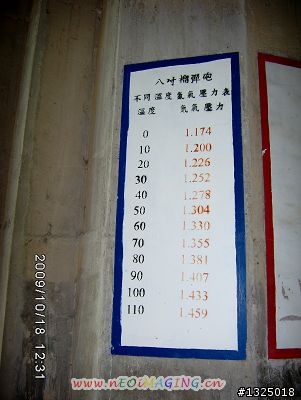 八吋榴彈砲
不同溫度氮氣壓力表
溫度 氮氣壓力
0 1.174
10 1.200
20 1.226
30 1.252
40 1.278
50 1.304
60 1.330
70 1.355
80 1.381
90 1.407
100 1.433
110 1.459
2009/10/18 12:31
www.nEOiMAGING.cn
#1325018